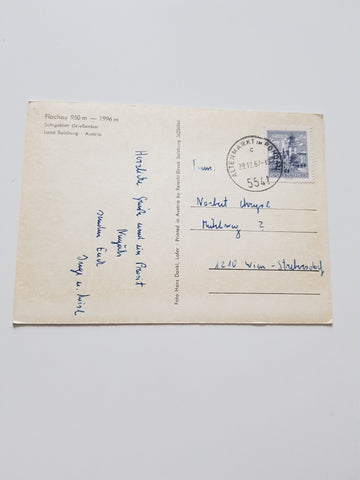 Flachau 930 m — 1996 m
Schigebiet Grießenkar
Land Salzburg · Austria
Herzliche Grüße und ein Prosit
Neujahr
senden Euch
Foto Hans Dankl, Lofer · Printed in Austria by Kolorit-Druck Salzburg
ALTENMARKT IM PONGAU
c
28.12.67
5541
Fam.
Norbert
Mühlweg 2
1210 Wien - Strebersdorf